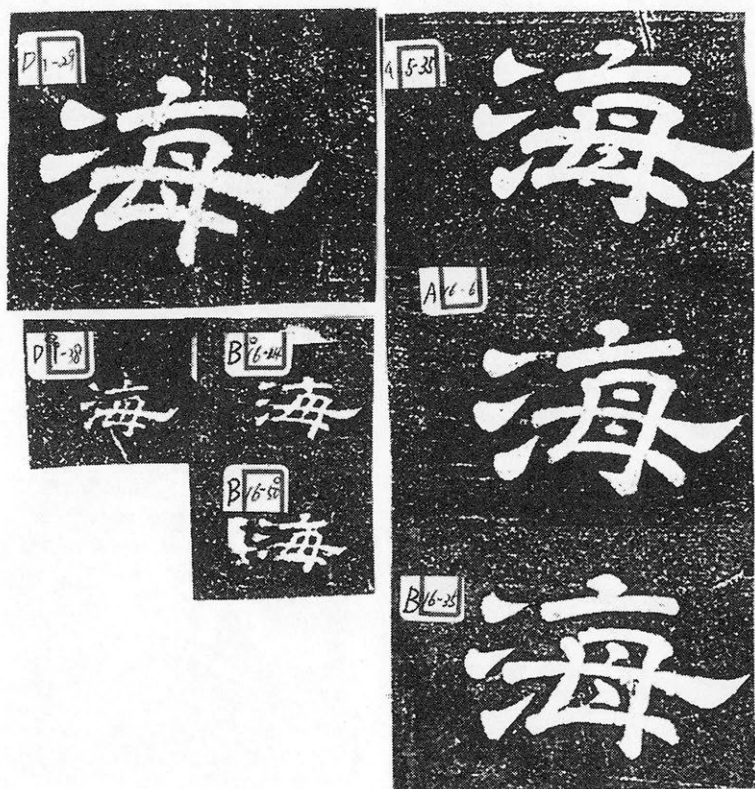 D 1-29
海
D 1-38
海
B 16-44
海
B 16-50
海
A 5-35
海
A 16-6
海
B 16-35
海